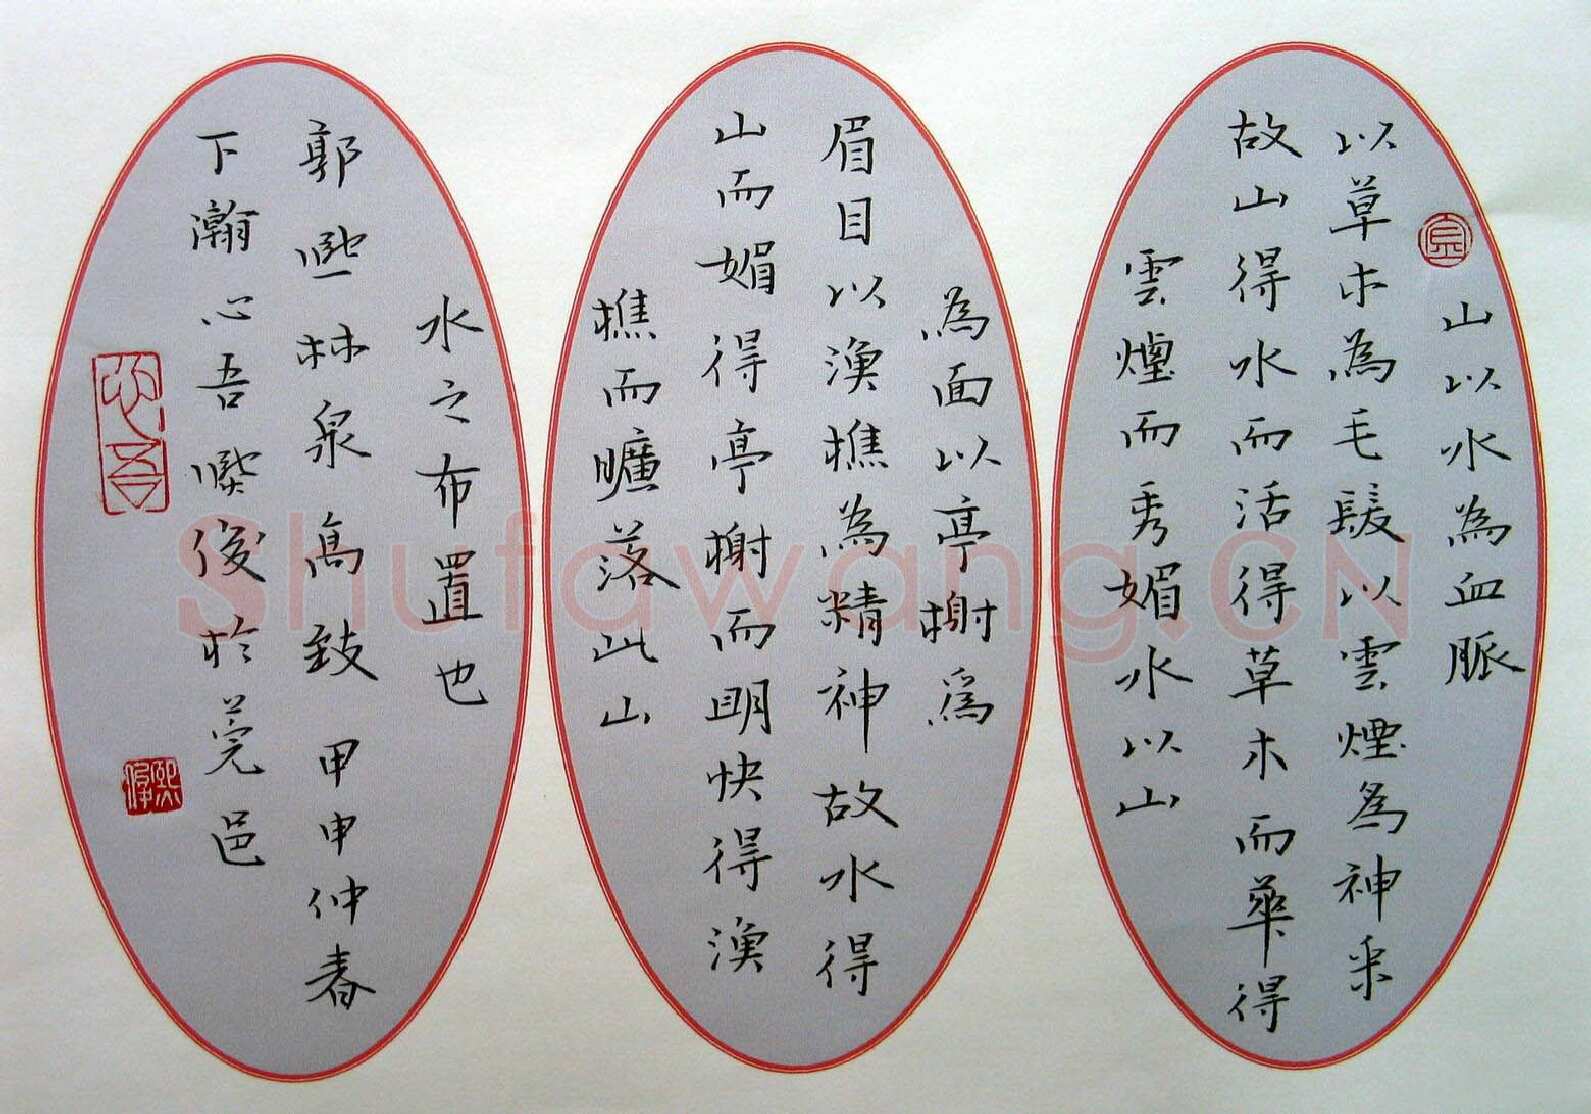 山以水為血脈
以草木為毛髮以雲煙為神采
故山得水而活得草木而華得
雲煙而秀媚水以山
為面以亭榭為
眉目以漁樵為精神故水得
山而媚得亭榭而明快得漁
樵而曠落此山
水之布置也
郭熙林泉高致甲申仲春
下瀚心吾熙俊於莞邑
心吾
Shufawang.CN